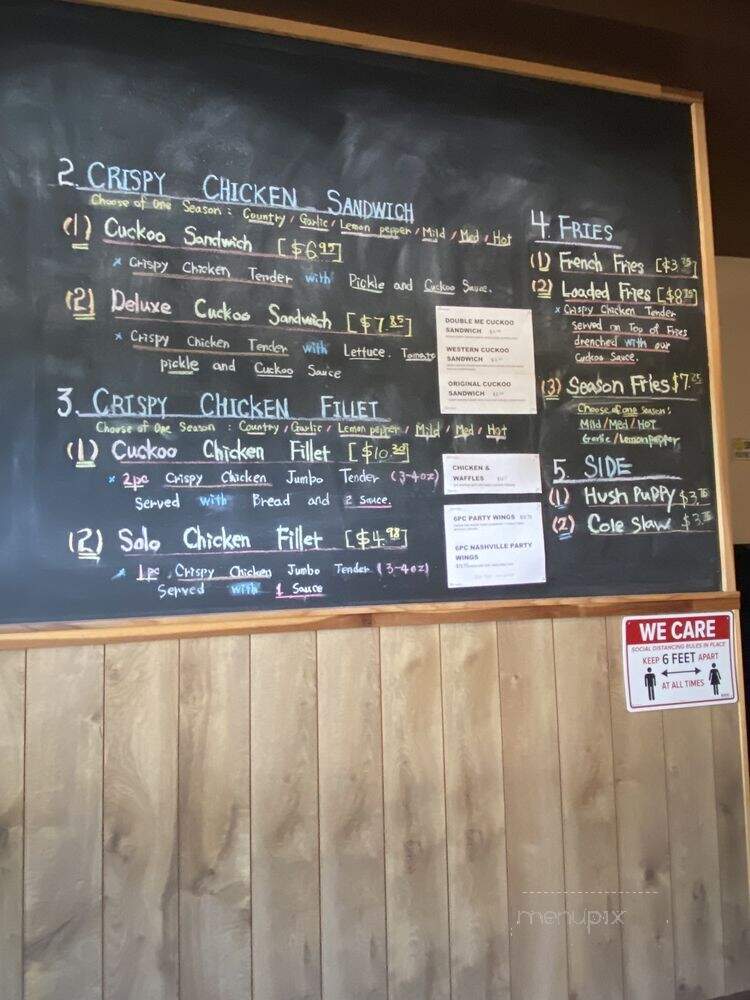 2. CRISPY CHICKEN SANDWICH
Choose of One Season: Country / Garlic / Lemon pepper / Mild / Med / Hot
(1) Cuckoo Sandwich [$6.95]
* Crispy Chicken Tender with Pickle and Cuckoo Sauce.
(2) Deluxe Cuckoo Sandwich [$7.85]
* Crispy Chicken Tender with Lettuce. Tomato
pickle and Cuckoo Sauce
3. CRISPY CHICKEN FILLET
Choose of One Season: Country / Garlic / Lemon pepper / Mild / Med / Hot
(1) Cuckoo Chicken Fillet
* 2pc Crispy Chicken Jumbo Tender (3-4oz)
Served with Bread and 2 Sauce.
(2) Solo Chicken Fillet [$4.98]
* 1pc Crispy Chicken Jumbo Tender (3-4oz)
Served with 1 Sauce
DOUBLE ME CUCKOO
SANDWICH
WESTERN CUCKOO
SANDWICH
ORIGINAL CUCKOO
SANDWICH
CHICKEN &
WAFFLES
6PC PARTY WINGS
6PC NASHVILLE PARTY
WINGS
4. FRIES
(1) French Fries
(2) Loaded Fries
* Crispy Chicken Tender
served on Top of Fries
drenched with our
Cuckoo Sauce.
(3) Season Fries $7.25
Choose of one Season:
Mild / Med / HOT
Garlic / Lemon pepper
5. SIDE
(1) Hush Puppy
(2) Cole Slaw
WE CARE
SOCIAL DISTANCING RULES IN PLACE
KEEP 6 FEET APART
AT ALL TIMES
menupix